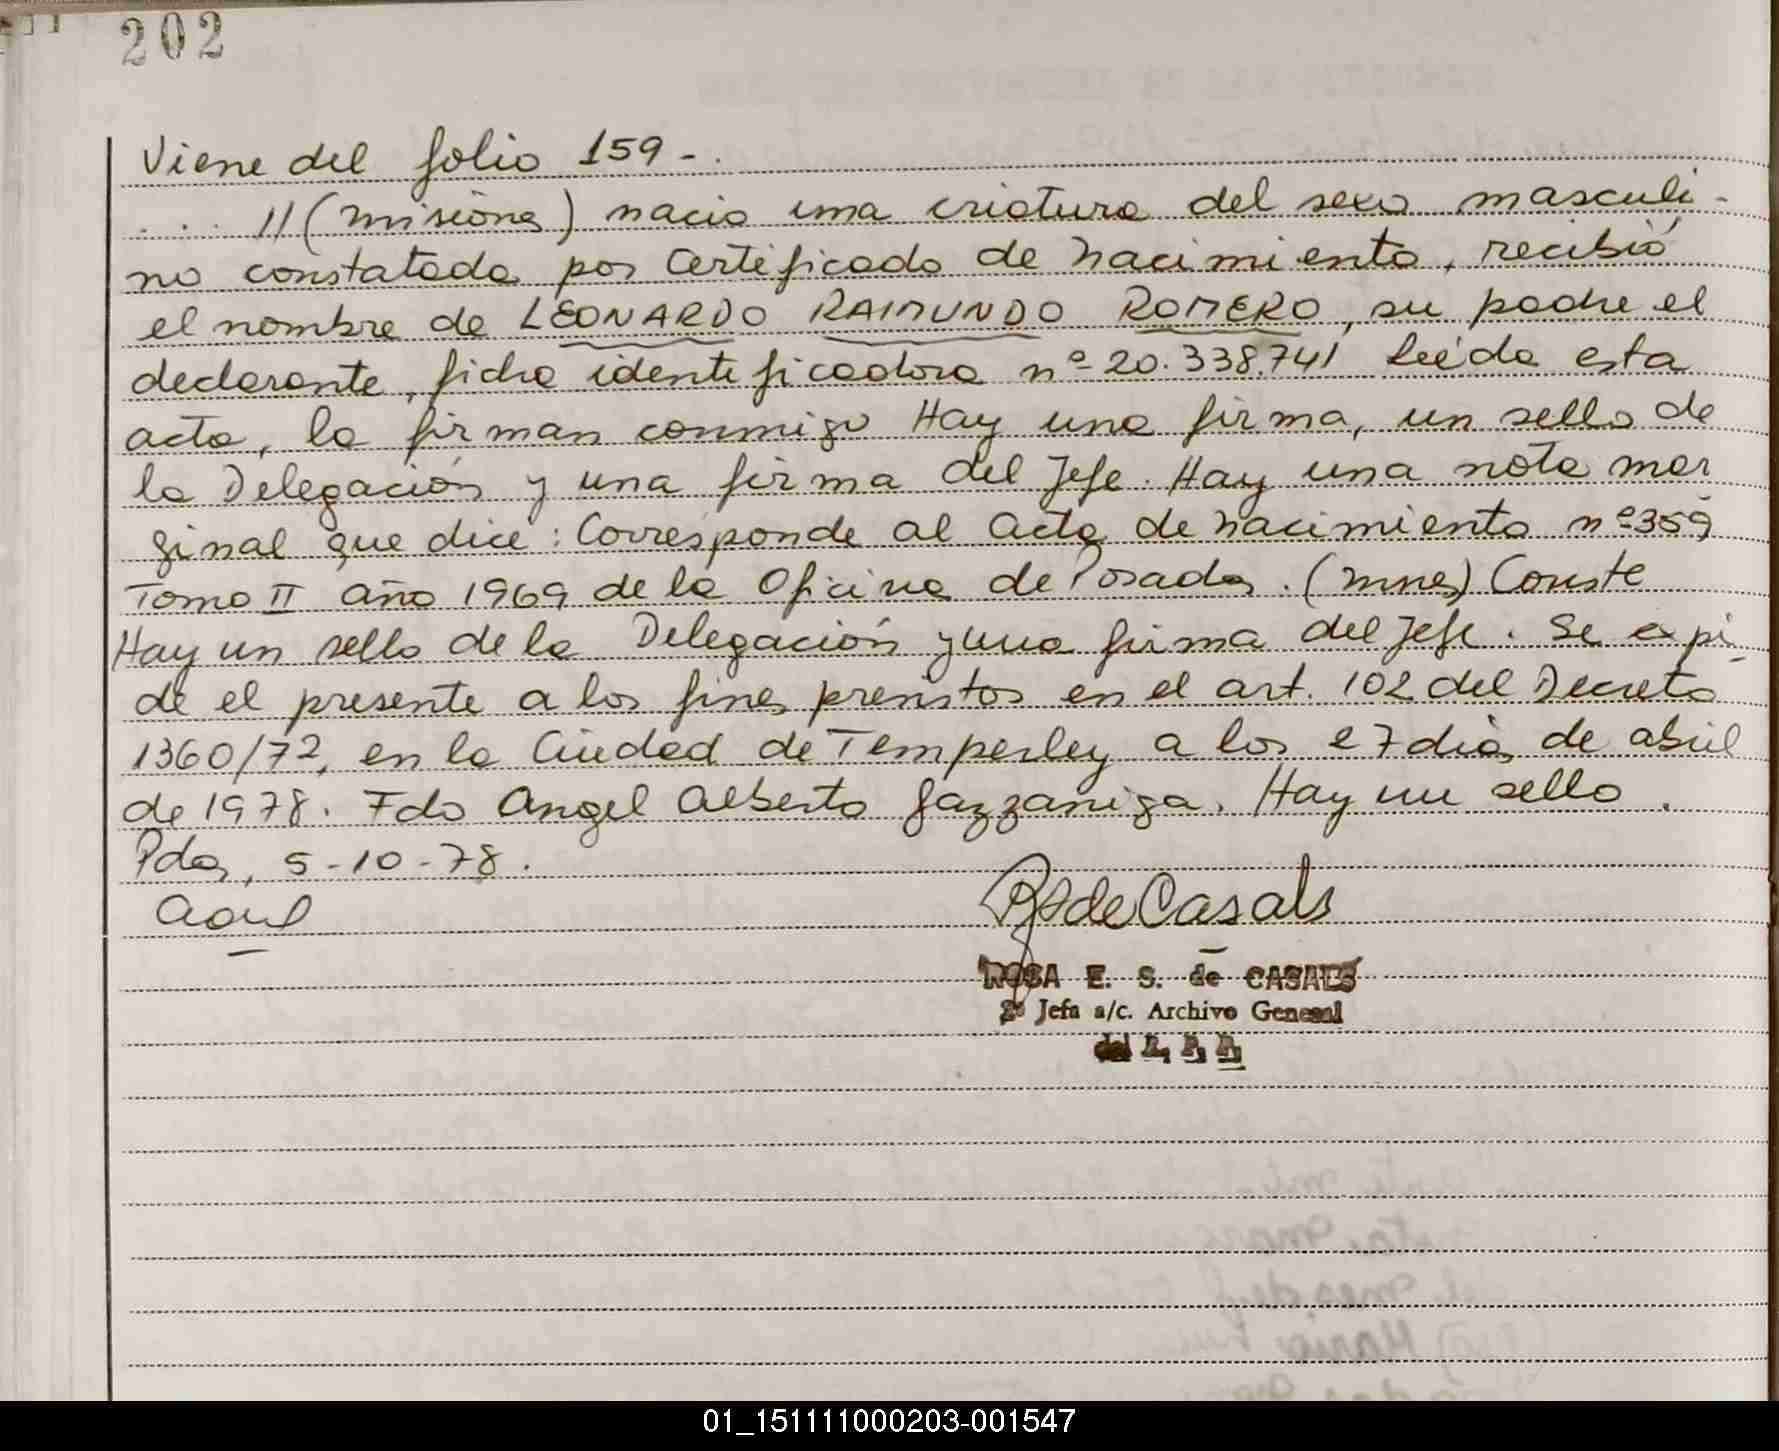 202
Viene del folio 159 - .
. . . // (misiones) nacio una criatura del sexo masculi -
no constatada por Certificado de nacimiento, recibió
el nombre de LEONARDO RAIMUNDO ROMERO, su padre el
declarante, ficha identificadora nº 20.338.741 Leída esta
acta, la firman conmigo Hay una firma, un sello de
la Delegación y una firma del Jefe. Hay una nota mar
ginal que dice: Corresponde al acta de nacimiento nº 359
Tomo II año 1969 de la Oficina de Posadas. (mnes) Conste
Hay un sello de la Delegación y una firma del Jefe. Se expi_
de el presente a los fines previstos en el art. 102 del Decreto
1360/72, en la Ciudad de Temperley a los 27 días de abril
de 1978. Fdo Angel Alberto Gazzaniga. Hay un sello.
Pdas, 5-10-78.
de Casals
ROSA E. S. de CASALS
2º Jefa a/c. Archivo General
del R. P. P.
01_151111000203-001547